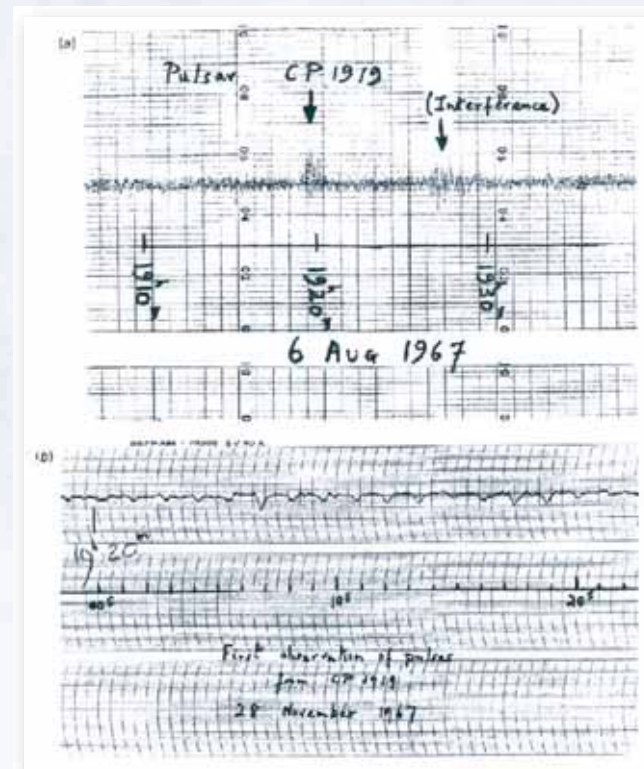 (a)
Pulsar CP 1919
(Interference)
1910
1920
1930
6 Aug 1967
(b)
19h 20m
00s 10s 20s
First observation of pulses
from CP 1919
28 November 1967